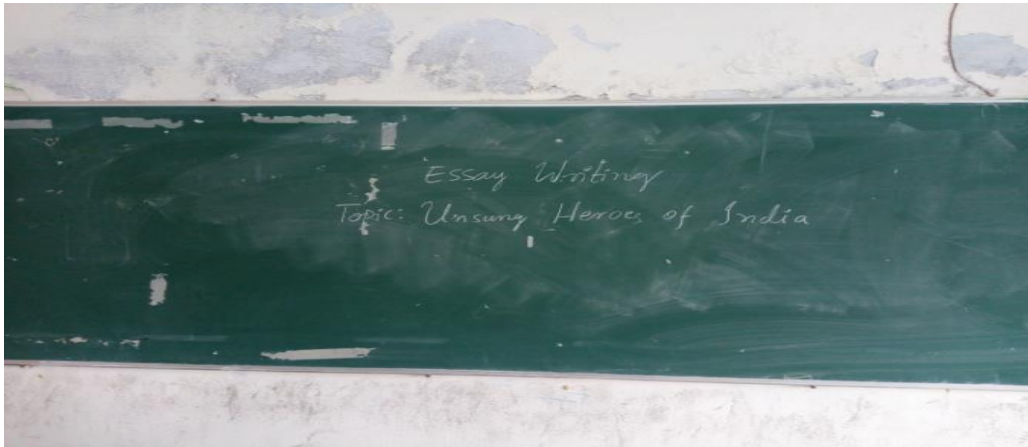 Essay Writing
Topic: Unsung Heroes of India